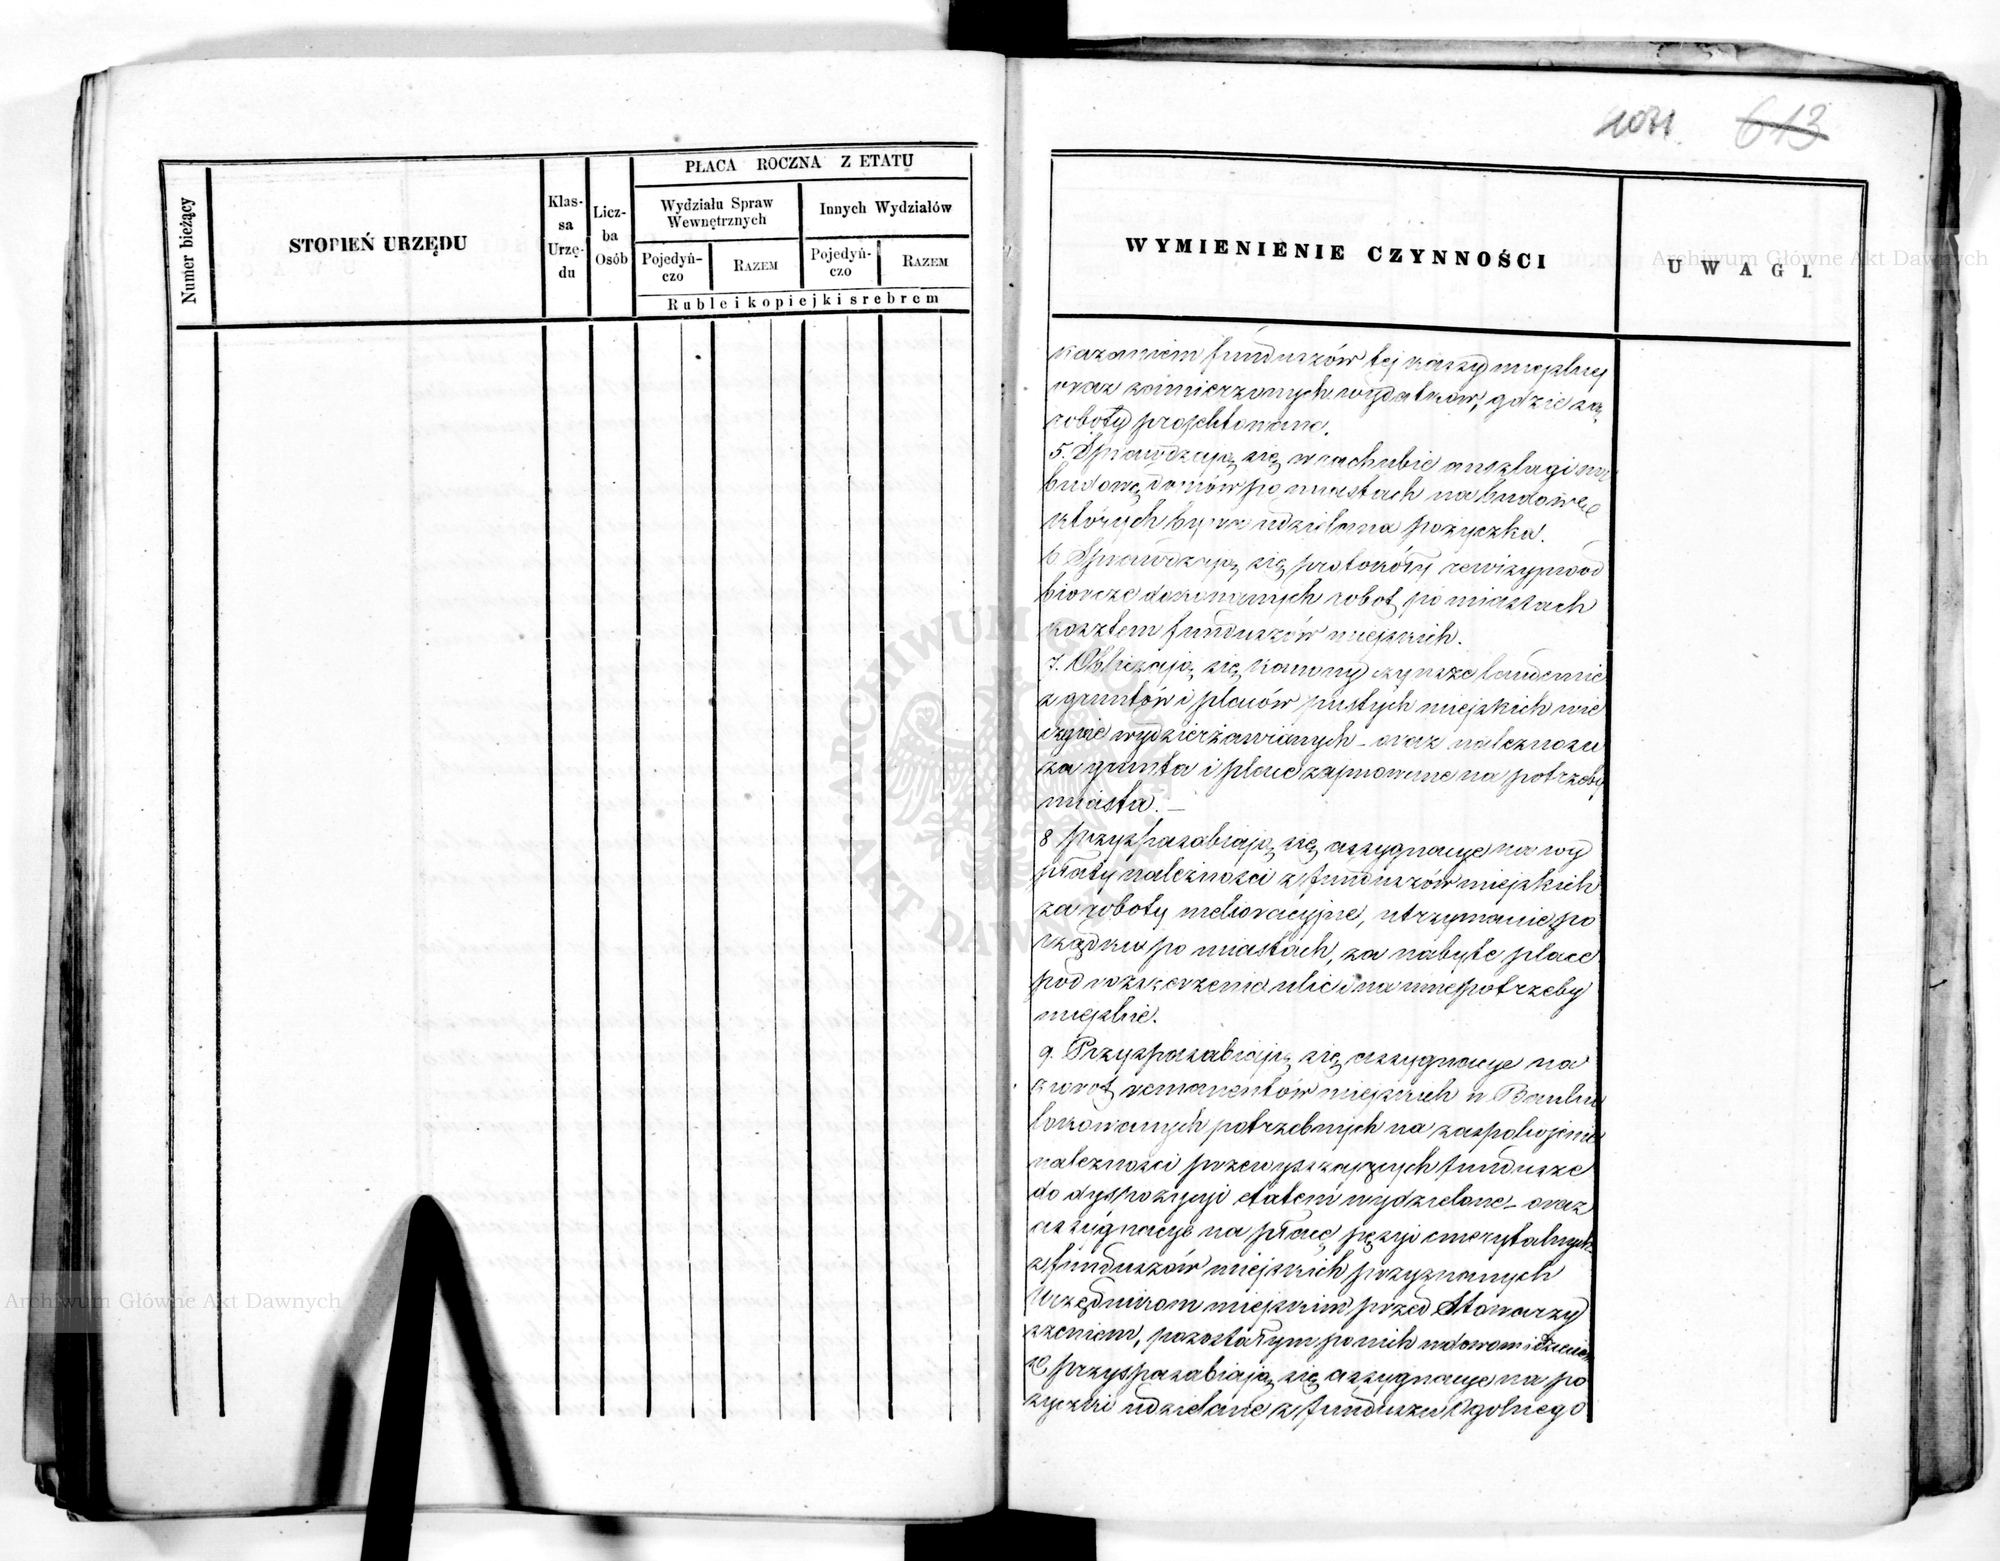 Numer bieżący
STOPIEŃ URZĘDU
Klas-
sa
Urzę-
du
Licz-
ba
Osób
PŁACA ROCZNA Z ETATU
Wydziału Spraw
Wewnętrznych
Innych Wydziałów
Pojedyń-
czo
RAZEM
Pojedyń-
czo
RAZEM
Ruble i kopiejki srebrem
1031. 613
WYMIENIENIE CZYNNOŚCI
UWAGI.
kazaniem funduszów tej kassy miejskiej
oraz zamierzonych wydatków, gdzie są
roboty projektowane.
5. Sprawdzają się w rachubie anszlagi na
budowę domów po miastach na budowę
których bywa udzielana pożyczka.
6 Sprawdzają się protokóły rewizyjno od
biorcze dokonanych robot po miastach
kosztem funduszów miejskich.
7. Obliczają się kanony czynsze laudemie
z gruntów i placów pustych miejskich wie
czyście wydzierżawianych – oraz należności
za grunta i place zajmowane na potrzeby
miasta. –
8 przysposabiają się assygnacye na wy
płaty należności z funduszów miejskich
za roboty melioracyjne, utrzymanie po
rządku po miastach, za nabyte place
pod rozszerzenie ulic i na inne potrzeby
miejskie.
9. Przysposabiają się assygnacye na
zwrot remanentów miejskich w Banku
lokowanych potrzebnych na zaspokojenie
należności przewyższających fundusze
do dyspozycyi etatem wydzielone – oraz
assygnacye na płacę pęsyi emerytalnych
z funduszów miejskich przyznanych
Urzędnikom miejskim przed Stowarzy
szeniem, pozostałym po nich wdowom i dzieciom
10, przysposabiają się assygnacye na po
życzki udzielane z funduszu Ogólnego
Archiwum Główne Akt Dawnych
Archiwum Główne Akt Dawnych
ARCHIWUM GŁÓWNE AKT DAWNYCH